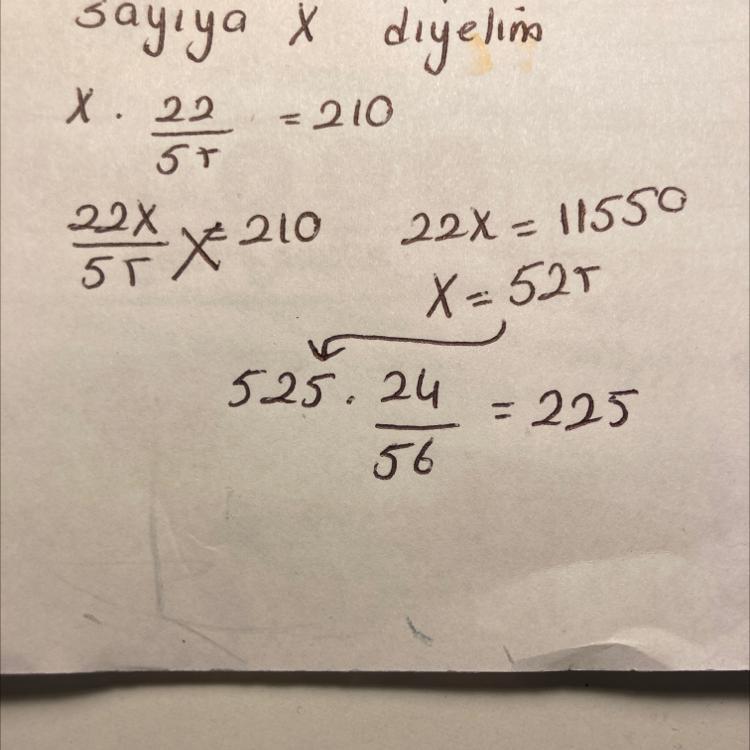 sayıya X diyelim
X · 22/55 = 210
22X/55 = 210 22X = 11550
X = 525
525 · 24/56 = 225